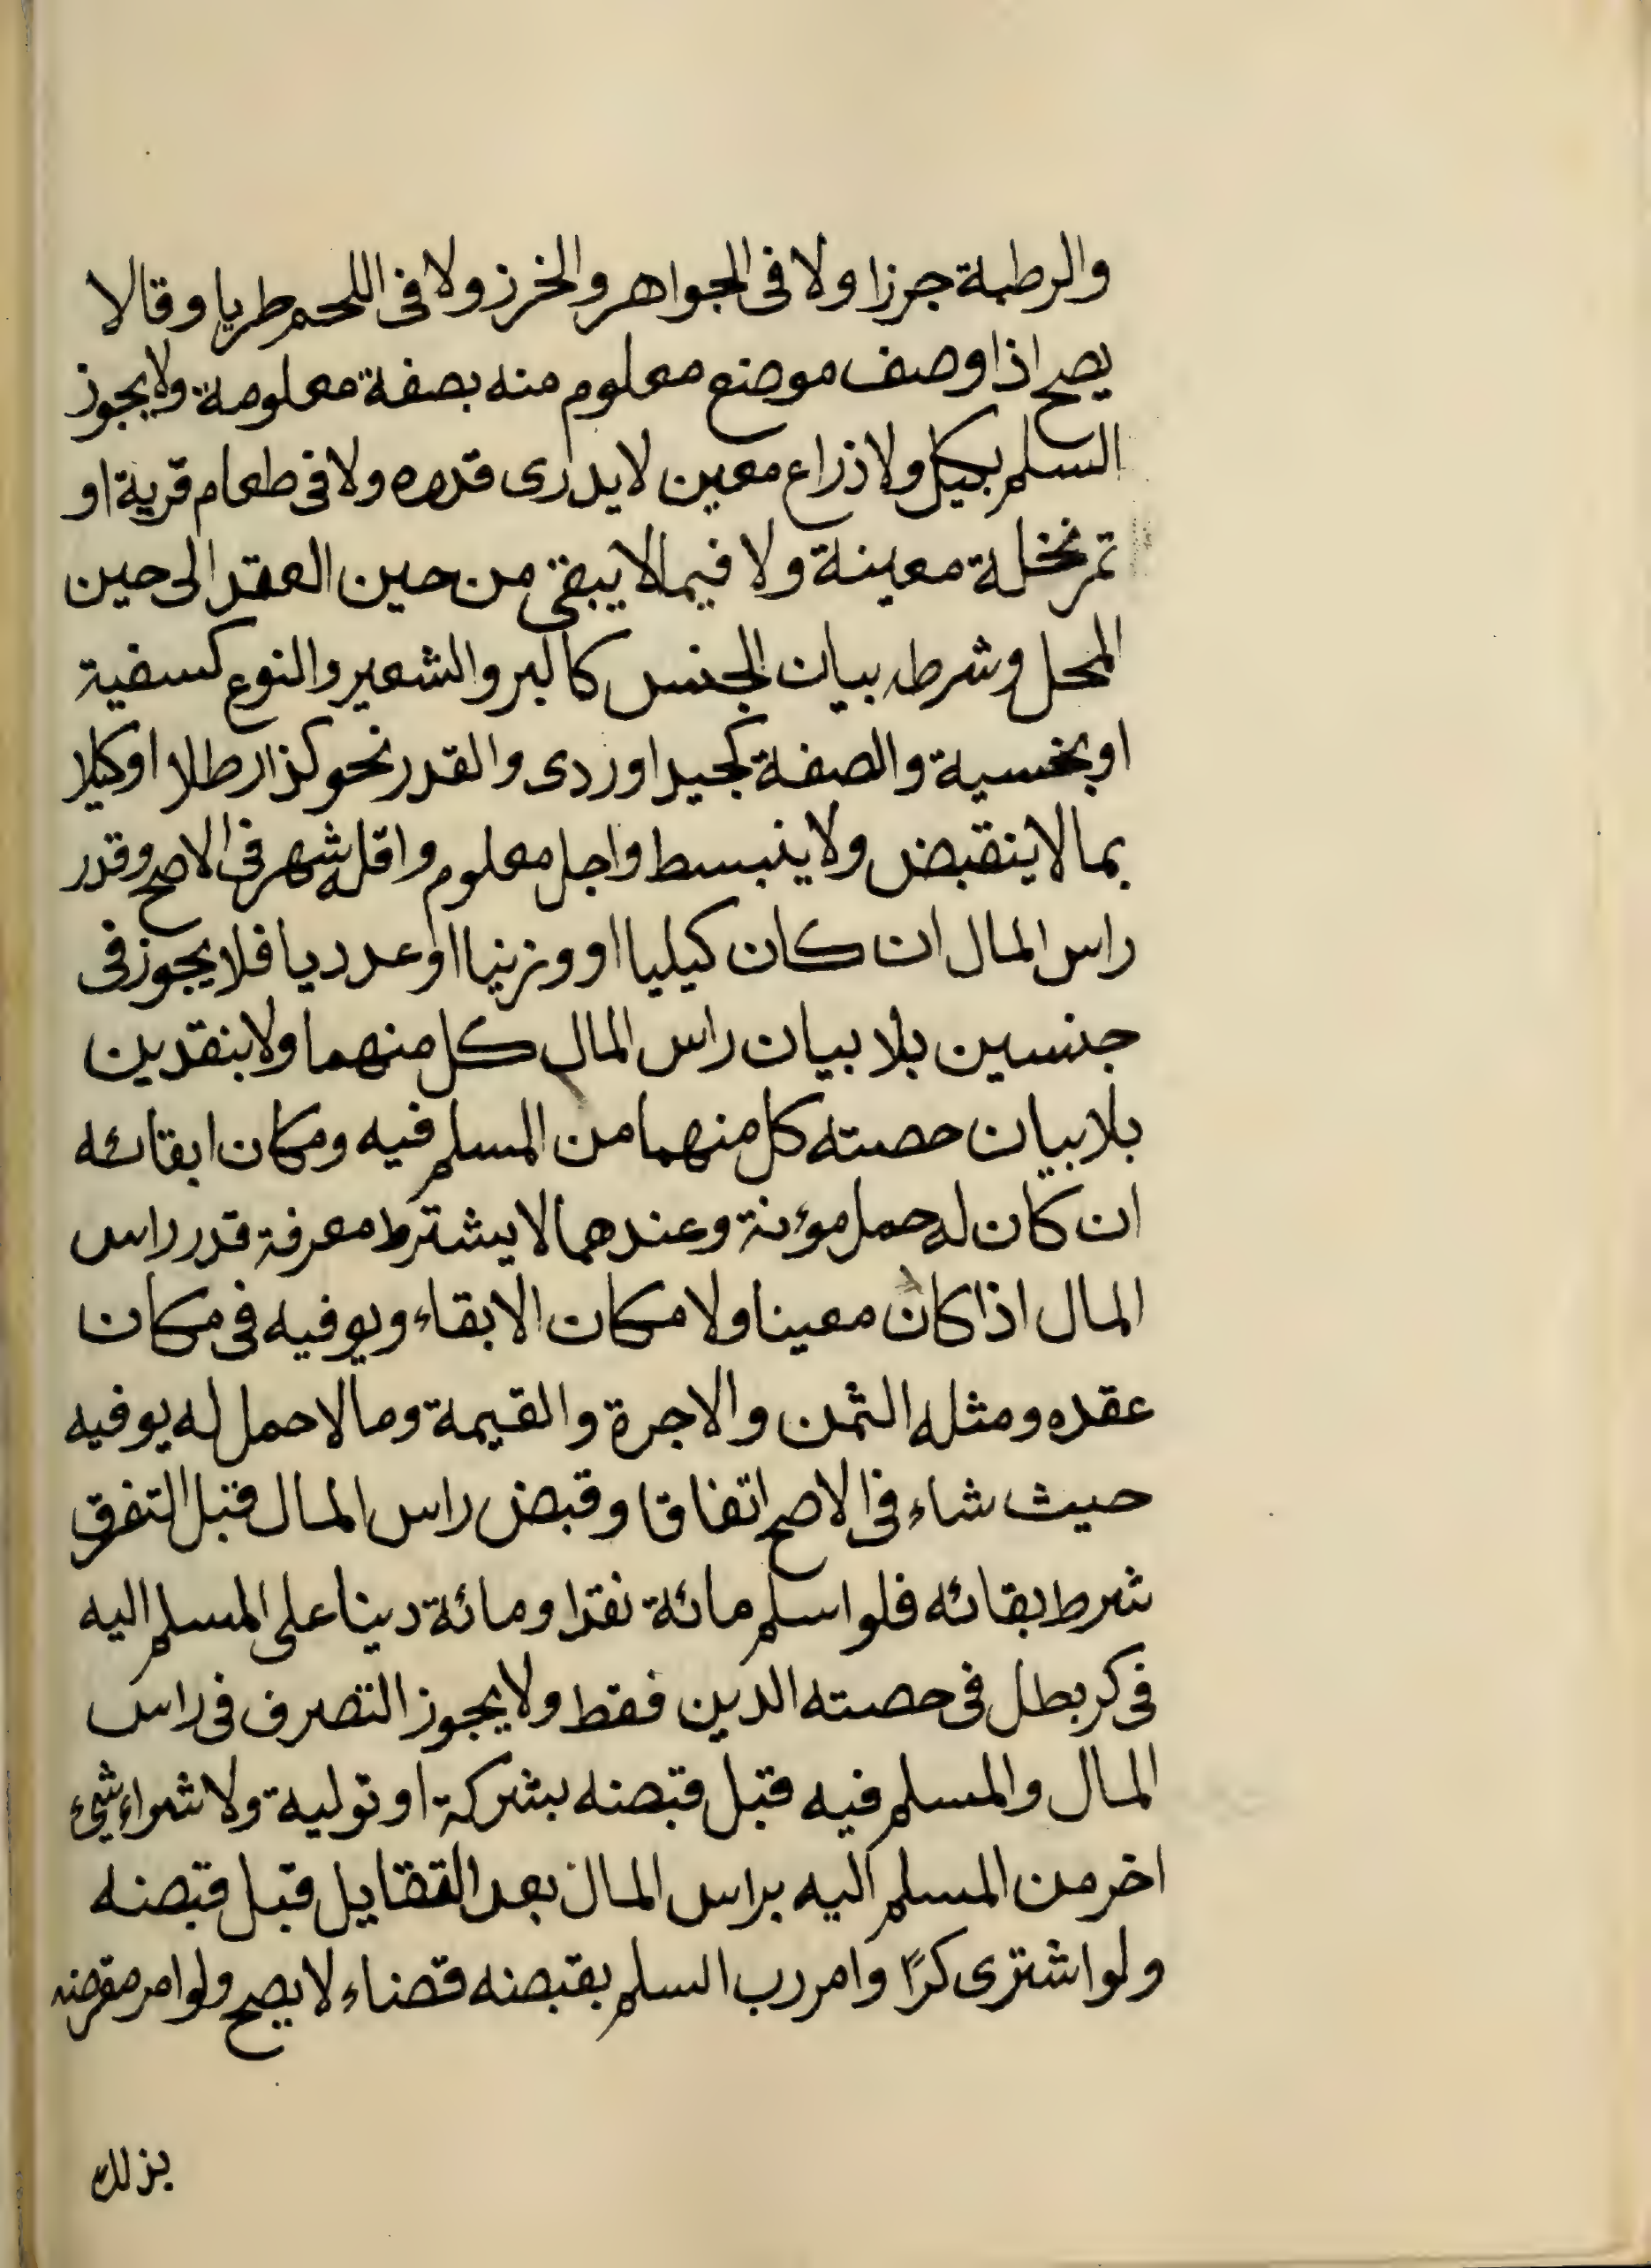 والرطبة جرزا ولا فى الجواهر والخرز ولا فى اللحم طريا وقالا
يصح اذا وصف موضع معلوم منه بصفة معلومة ولا يجوز
السلم بكيل ولا ذراع معين لا يدرى قدره ولا فى طعام قرية او
تمر نخلة معينة ولا فيما لا يبقى من حين العقد الى حين
المحل وشرطه بيان الجنس كالبر والشعير والنوع كسفية
او بخسية والصفة كجيد او ردى والقدر نحو كذا رطلا او كيلا
بما لا ينقبض ولا ينبسط واجل معلوم واقله شهر فى الاصح وقدر
راس المال ان كان كيليا او وزنيا او عدديا فلا يجوز فى
جنسين بلا بيان راس المال كل منهما ولا بنقدين
بلا بيان حصته كل منهما من المسلم فيه ومكان ابقائه
ان كان له حمل مؤنة وعندهما لا يشترط معرفة قدر راس
المال اذا كان معينا ولا مكان الابقاء ويوفيه فى مكان
عقده ومثله الثمن والاجرة والقيمة وما لا حمل له يوفيه
حيث شاء فى الاصح اتفاقا وقبض راس المال قبل التفرق
شرط بقائه فلو اسلم مائة نقدا ومائة دينا على المسلم اليه
فى كر بطل فى حصته الدين فقط ولا يجوز التصرف فى راس
المال والمسلم فيه قبل قبضه بشركة او تولية ولا شراء شئ
اخر من المسلم اليه براس المال بعد التقايل قبل قبضه
ولو اشترى كرًا وامر رب السلم بقبضه قضاء لا يصح ولو امر مقرضه
بذلك